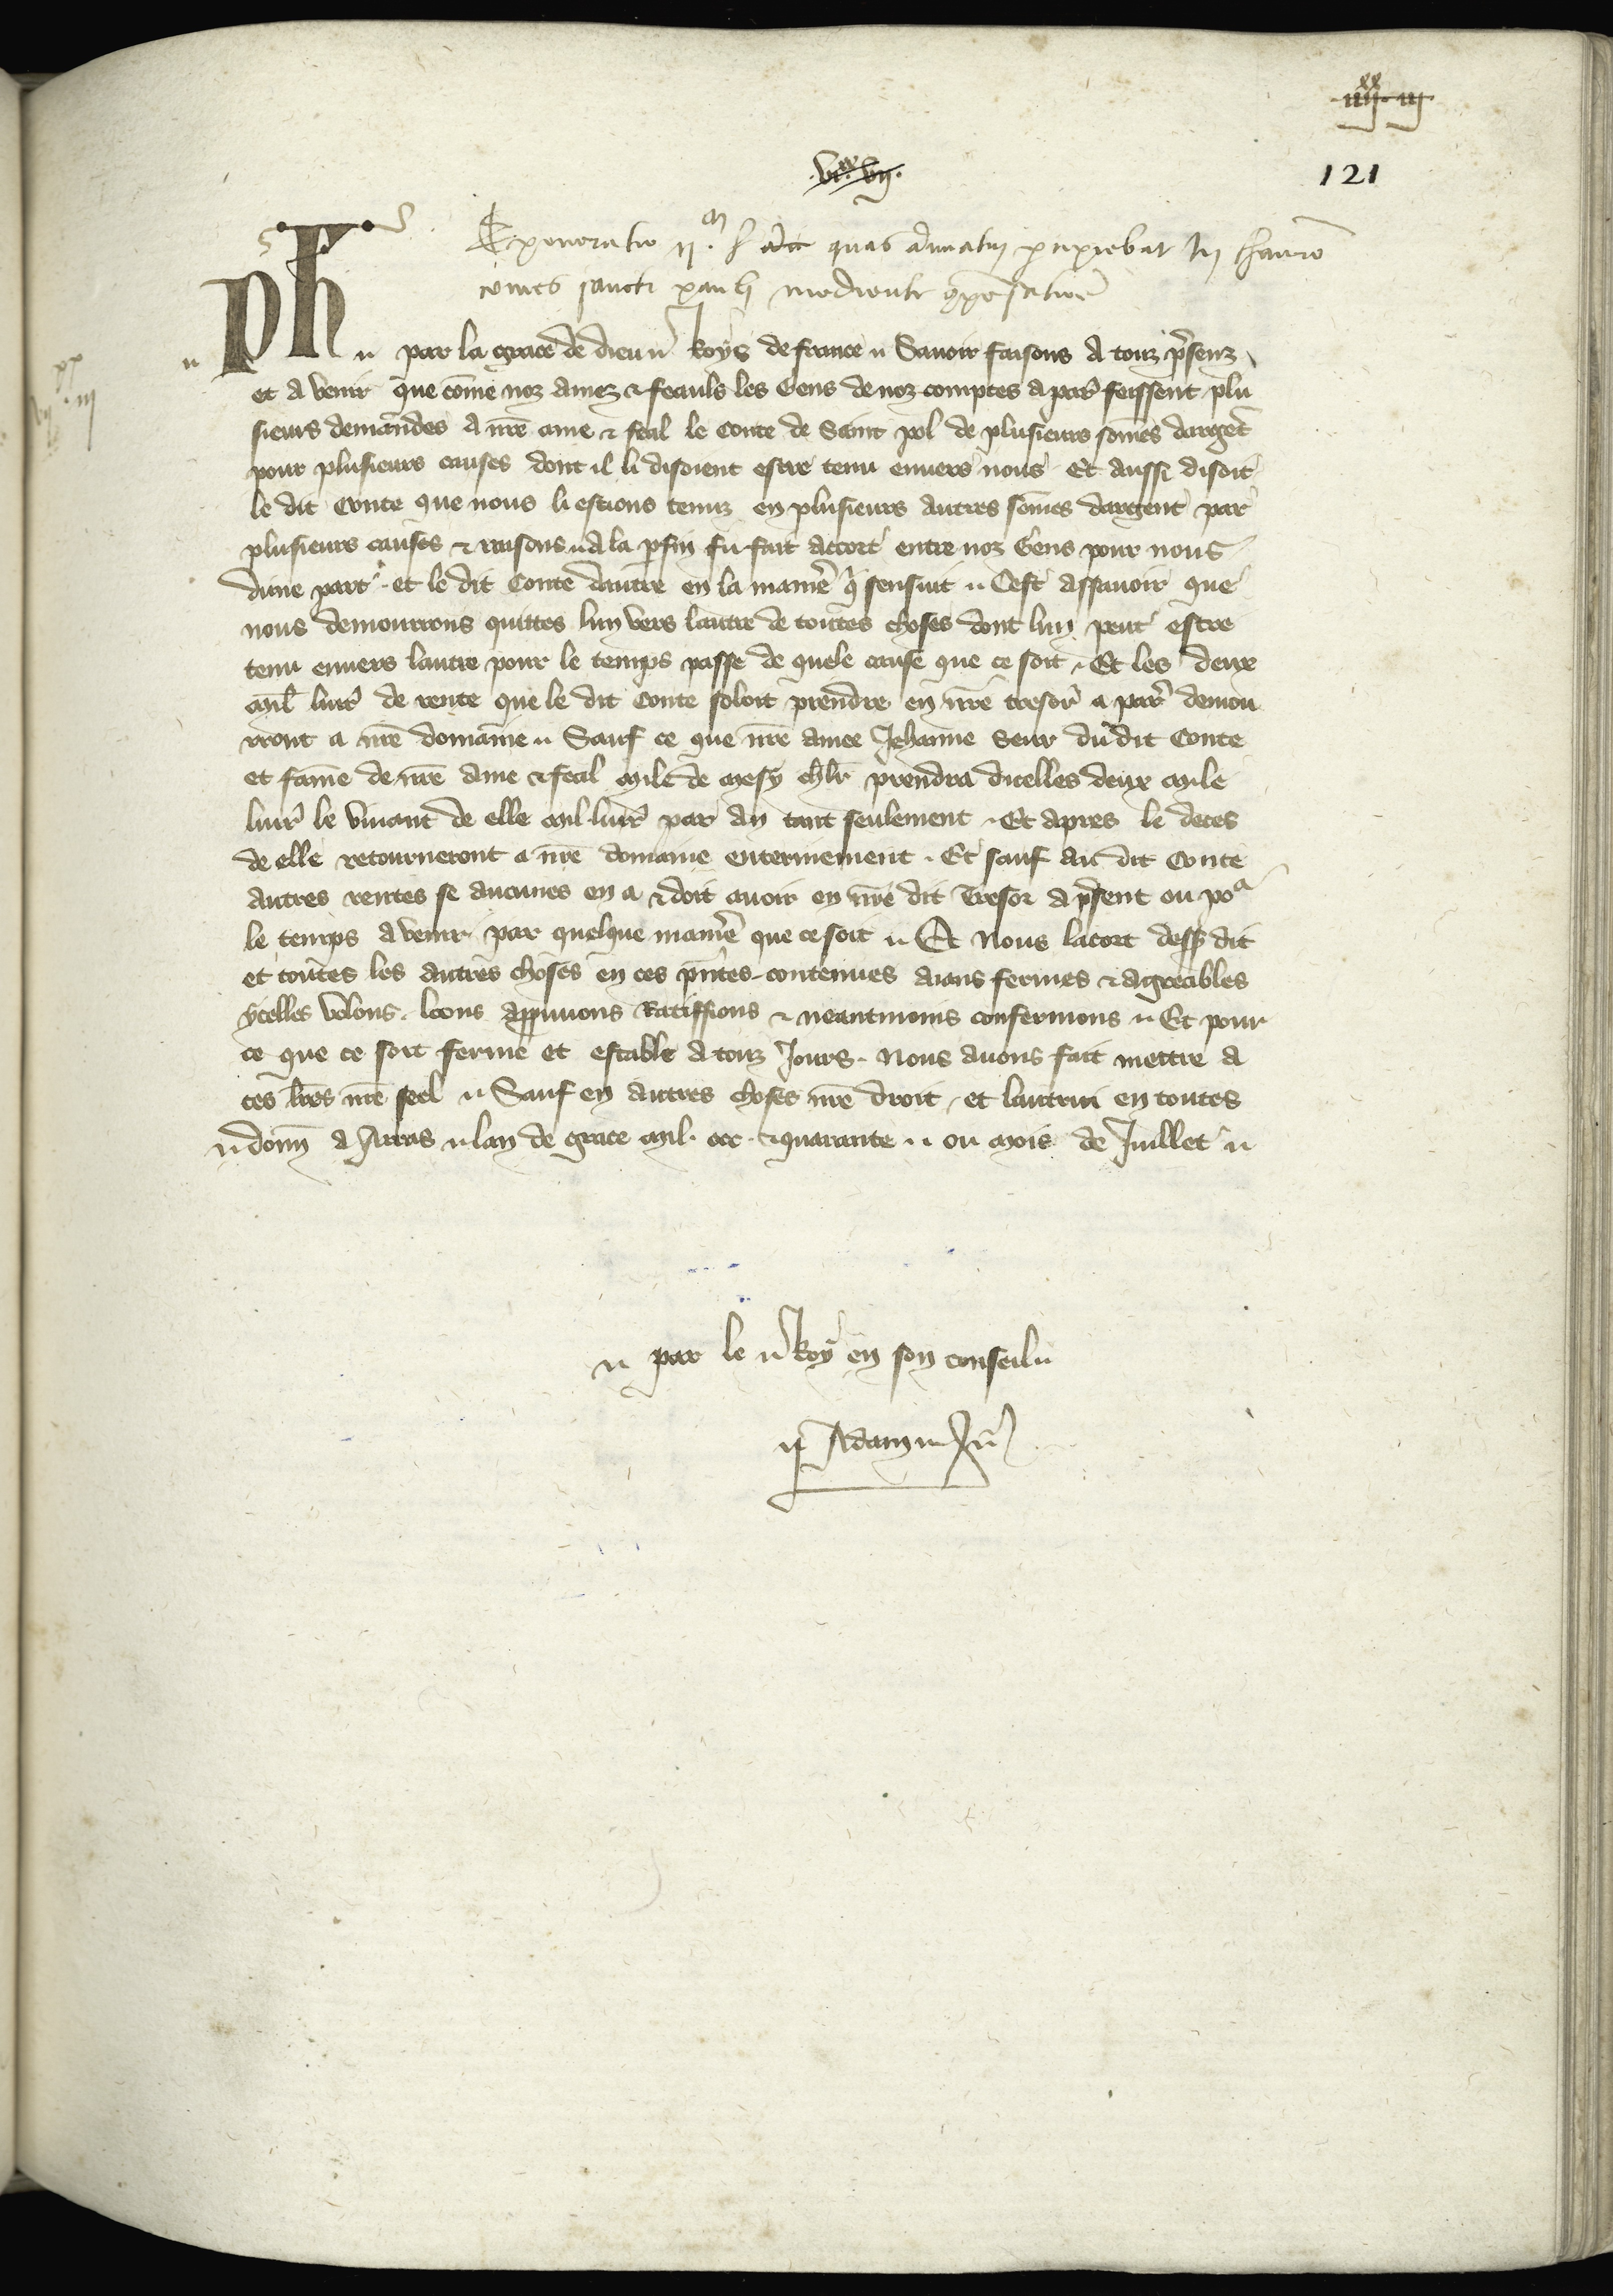 .iiii.xx iii.
.vi.xx vii.
121
Exoneratio ii.m l quas annuatim percipiebat in thesauro
comes sancti pauli mediante
Ph̅s
par la grace de dieu Roys de france Savoir faisons A touz p̅senz
et a venir que co̅me noz amez & feauls les Gens de noz comptes a par̕ feissent plu
sieurs demandes A nr̅e ame & feal le Conte de Saint pol de plusieurs som̅es dargent̅
pour plusieurs causes dont il li disoient estre tenu enuers nous Et aussi disoit
le dit Conte que nous li estions tenuz en plusieurs autres som̅es dargent par
plusieurs causes & raisons A la p̱fin fu fait accort entre noz Gens pour nous
dune part et le dit Conte dautre en la manie̅ q̅ sensuit Cest assavoir que
nous demourrons quittes lun vers lautre de toutes choses dont lun peut estre
tenu enuers lautre pour le temps passe de quele cause que ce soit Et les deux
mil̅ liur̕ de rente que le dit Conte soloit prendre en nr̅e tresor a par̕ demou
rront a nr̅e domaine Sauf ce que nr̅e amee Jehanne seur du dit Conte
et fame̅ de nr̅e ame & feal mile de mesy chlr̅ prendra dicelles deux mile
liur̕ le viuant de elle mil liur̕ par an tant seulement Et apres le deces
de elle retourneront a nr̅e domaine enterinement Et sauf au dit Conte
autres rentes se aucunes en a & doit auoir en nr̅e dit Tresor a p̅sent ou po
le temps a venir par quelque manie̅ que ce soit Et Nous lacort dess dit
et toutes les autres choses en ces p̅ntes contenues aians fermes & agreables
ycelles volons loons app̱uuons Ratiffions & neantmoins confermons Et pour
ce que ce soit ferme et estable a touz Jours Nous auons fait mettre a
ces lr̅es nr̅e seel Sauf en autres choses nr̅e droit et lautrui en toutes
don̅n a Arras lan de grace mil ccc & quarante ou mois de Juillet
par le Roy en son conseil
Adam